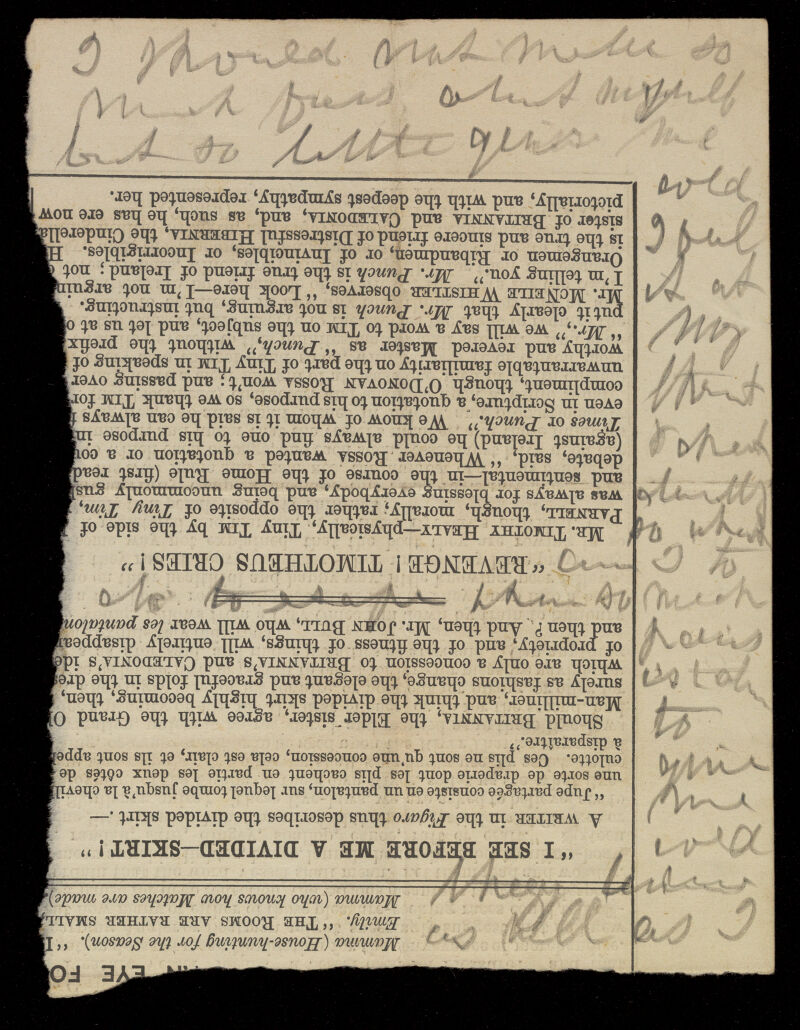 I should not make so
much fuss about myself
but so little gives me
cold
I feel
it at
my
throat
& chest
directly
so when
am I to
when so much
pains
is taken
to
give
me
cold
they know
as well as I
AN EYE FO
Mamma (House-hunting for the Season). "I
Emily. "THE ROOMS ARE RATHER SMALL,
Mamma (who knows how Matches are made)
"I SEE BEFORE ME A DIVIDED—SKIRT!"
A WRITER in the Figaro thus describes the divided skirt.—
"Jupe partagée consiste en un pantalon, sur lequel tombe jusqu'à la chevil
une sorte de draperie dont les plis cachent en partie les deux côtés de
culotte. Ces plis ne sont qu'une concession, cela est clair, et ils sont appel
à disparaître."
Should BRITANNIA, the Elder sister, agree with the Grand O
Man-milliner, and think the divided skirt highly becoming, then,
surely as fashions change, the elegant and graceful folds in the dre
which are only a concession to BRITANNIA'S and CALEDONIA'S ide
of propriety, and of the fitness of things, will entirely disappear
and then? And then, Mr. JOHN BULL, who will wear les pantalon
"REVENGE! TIMOTHEUS CRIES!"
MR. TIMOTHY HEALY—physically, Tiny TIM by the side of
PARNELL, though, morally, rather the opposite of Tiny Tim,
was always for blessing everybody, and being uncommonly gus
and sentimental—in the course of the Home Rule (first read
debate, said, "Whenever ROSSA wanted a quotation or a cou
(against Ireland) he could always find one to his purpose in
Times or Punch." We know of whom it is said he can always f
even in Scripture, a quotation to his purpose, so we thank TIM for
compliment, though O'DONOVAN ROSSA won't; and passing over
unwarrantable familiarity on the part of Tiny TIM in speaking of
worthy and revered Master as "Punch," without the prefix
"Mr.," we will say a word to TIM on the subject, and let us at o
put it clearly that Mr. Punch is not arguing, but instructing.
Mr. MCNEILE WHISTLER observes, "Look here—I'm not arguin
I'm telling you." Mr. Punch is the true friend of Ireland; not
Orangemen or Ribandmen, or of Invincibles, or Incorrigibles. H
is the true and sincere friend of Distressful HIBERNIA, the Cinderella
sister of BRITANNIA and CALEDONIA, and, as such, he has ere now
pictorially, and with the deepest sympathy, represented her.